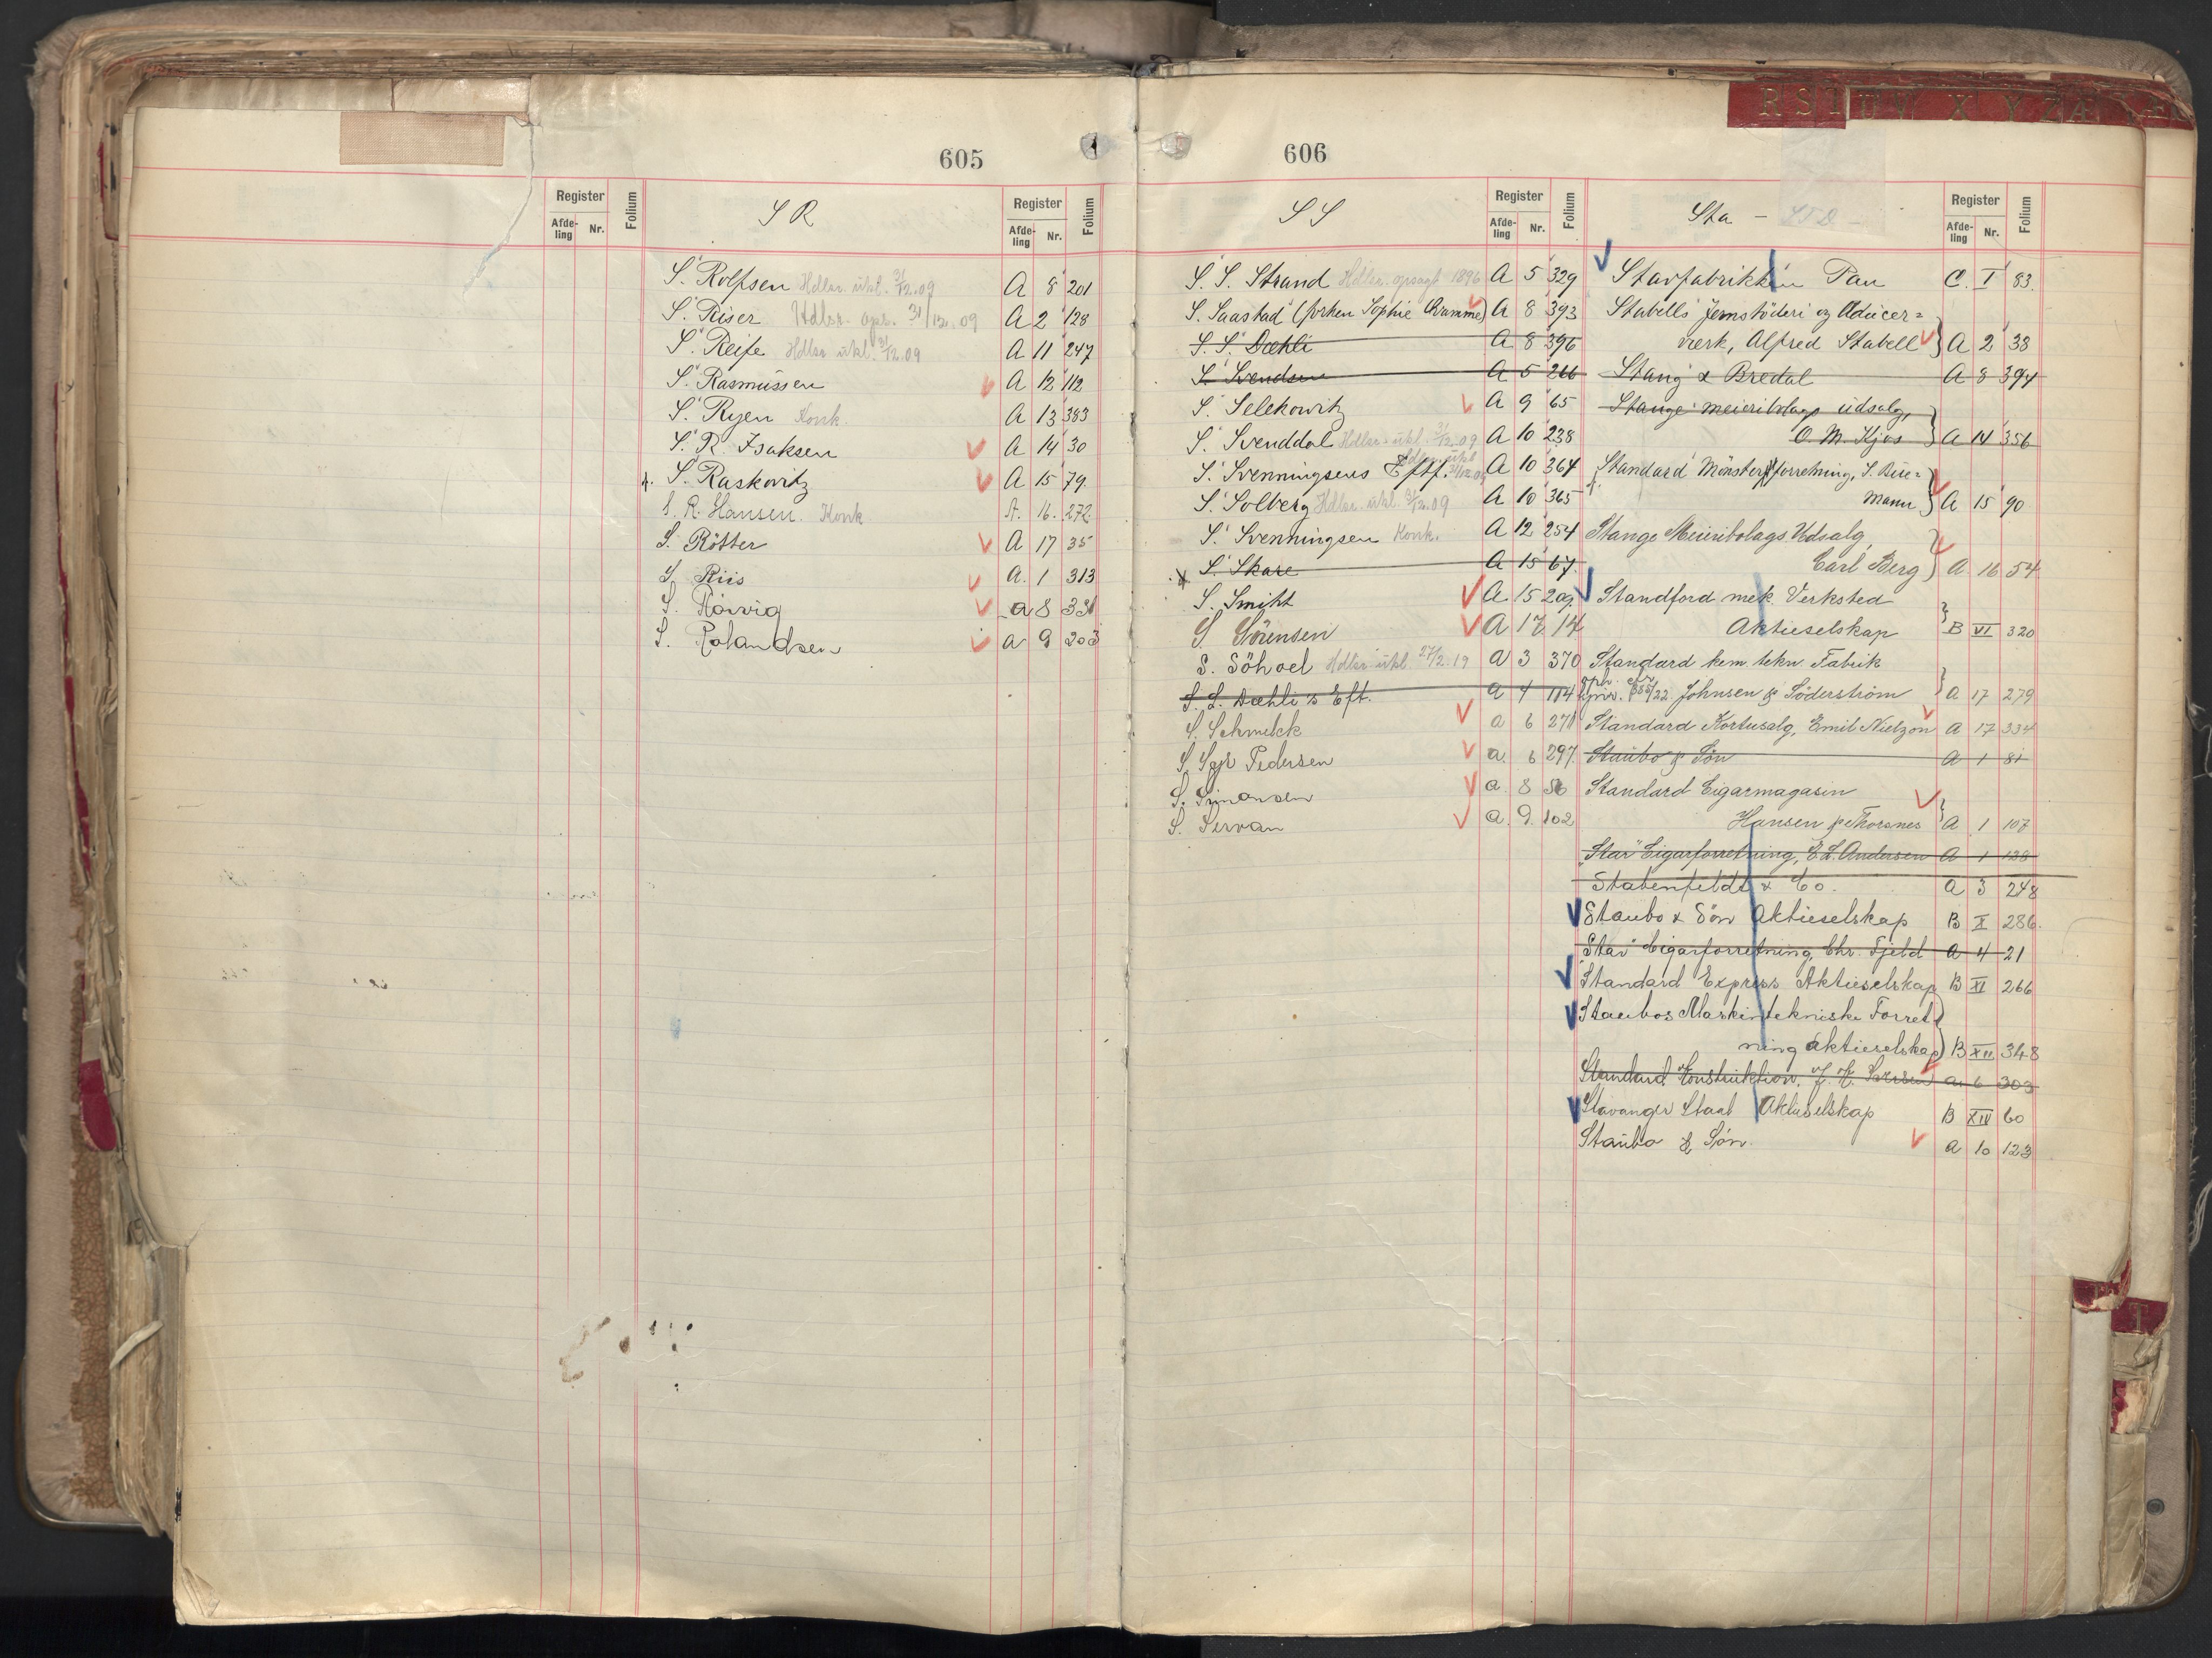 605
Register
Folium
Afde-
ling Nr.
S R
Register
Folium
Afde-
ling Nr.
S. Rolfsen Hdlsr. utkl. 31/12.09 A 8 201
S. Riser Hdlsr. opr. 31/12.09 A 2 128
S. Reife Hdlsr utkl. 31/12.09 A 11 247
S. Rasmussen A 12 112
S. Ryen Konk. A 13 383
S. R. Isaksen A 14 30
S. Raskovitz A 15 79.
S. R. Hansen. Konk A. 16. 272
S. Rötter A 17 35
S. Riis A. 1 313
S. Rörvig a 8 331
S. Rolandsen a 9 203
606
S S
Register
Folium
Afde-
ling Nr.
S. S. Strand Hdlsr. opsagt 1896 A 5 329
S. Saastad (frøken Sophie Gramme) A 8 393
S. S. Dæhli A 8 396
S. Svendsen A 5 266
S. Selekowitz A 9 65
S. Svenddal Hdlsr. utkl. 31/12.09 A 10 238
S. Svenningsens Eftf. Hdlsr. utkl. 31/12.09 A 10 364
S. Solberg Hdlsr. utkl. 31/12.09 A 10 365
S. Svenningsen Konk. A 12 254
S. Skare A 15 67.
S. Smiht A 15 209.
S Sörensen A 17 14
S. Söhoel Hdlsr. utkl. 27/2.19 A 3 370
S. S. Dæhli's Eft. a 4 114
S. Schmelck a 6 271
S. Sgr Pedersen a. 6 297.
S. Simonsen a. 8 56
S. Servan a. 9. 102
R S T U V X Y Z Æ
Sta - STD -
Register
Folium
Afde-
ling Nr.
Stavfabrikken Pan C. I 83.
Stabells Jernstöderi og Adücer=
værk, Alfred Stabell A 2 38
Stang & Bredal A 8 394
Stange meieribolags udsalg,
O. M. Kjos A 14 356
Standard Mönsterforretning, S. Bue=
mann A 15 90
Stange Meieribolags Udsalg,
Carl Berg A 16 54
Standford mek. Verksted
Aktieselskap B VI 320
Standard kem. tekn. Fabrik
Johnsen & Söderström A 17 279
Standard Kortusalg, Emil Nielzon A 17 334
Staubo & Sön A 1 81
Standard Cigarmagasin
Hansen & Thorsnes A 1 107
"Star" Cigarforretning, E. L. Andersen A 1 128
Stabenfeldt & Co. A 3 248
Staubo & Sön Aktieselskap B X 286.
"Star" Cigarforretning, Chr. Fjeld a 4 21
Standard Express Aktieselskap B XI 266
Staubos Maskintekniske Forret-
ning aktieselskap B XII 348
Standard Konstruktion, J. H. Larsen a. 6 303
Stavanger Staal Aktieselskap B XIV 60
Staubo & Sön. a 10 123
T